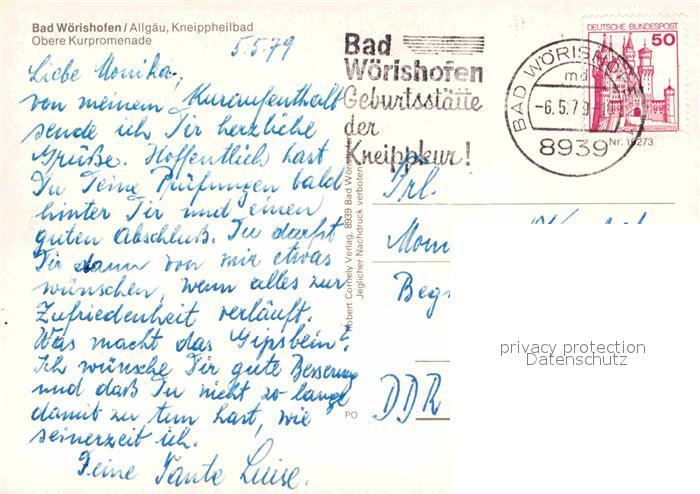 Bad Wörishofen / Allgäu, Kneippheilbad
Obere Kurpromenade
5.5.79
Liebe Monika,
von meinem Kuraufenthalt
sende ich Dir herzliche
Grüße. Hoffentlich hast
Du Deine Prüfungen bald
hinter Dir und einen
guten Abschluß. Du darfst
Dir dann von mir etwas
wünschen, wenn alles zur
Zufriedenheit verläuft.
Was macht das Gipsbein?
Ich wünsche Dir gute Besserung
und daß Du nicht so lange
damit zu tun hast, wie
seinerzeit ich.
Deine Tante Luise.
Bad
Wörishofen
Geburtsstätte
der
Kneippkur!
BAD WÖRISHOFEN
md
-6.5.79
8939
DEUTSCHE BUNDESPOST
50
Nr. 16273
Robert Cornely Verlag, 8939 Bad Wörishofen
Jeglicher Nachdruck verboten
PO
Frl.
DDR
privacy protection
Datenschutz